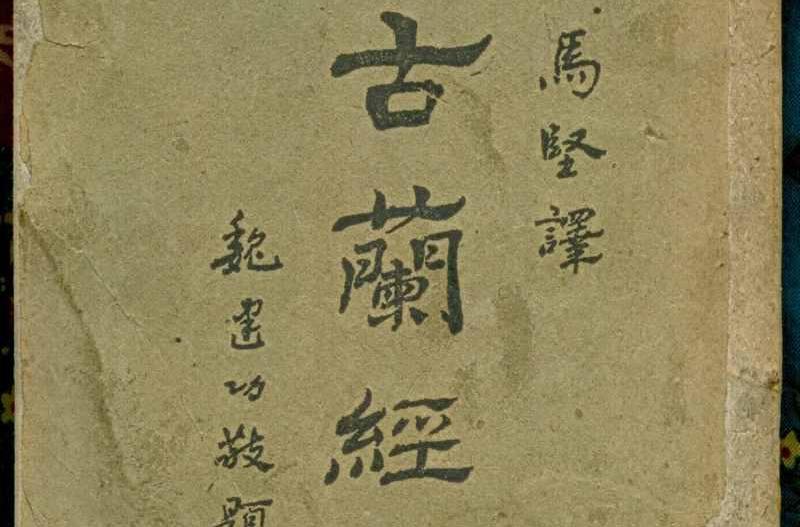 馬堅譯
古蘭經
魏建功敬題